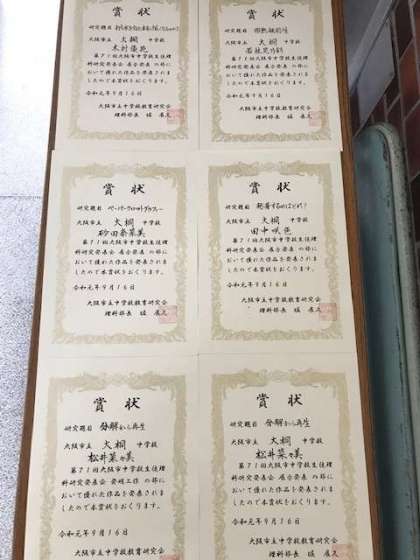 賞状
研究題目
大阪市立 大桐 中学校
第71回大阪市中学校生徒理
科研究発表会 展示発表 の部に
おいて優れた作品を発表されま
したので本賞状をおくります。
令和元年9月16日
大阪市立中学校教育研究会
理科部長
賞状
研究題目
大阪市立 大桐 中学校
第71回大阪市中学校生徒理
科研究発表会 展示発表 の部に
おいて優れた作品を発表されま
したので本賞状をおくります。
令和元年9月16日
大阪市立中学校教育研究会
理科部長
賞状
研究題目 ペーパークロマトグラフィー
大阪市立 大桐 中学校
砂田奈菜美
第71回大阪市中学校生徒理
科研究発表会 展示発表 の部に
おいて優れた作品を発表されま
したので本賞状をおくります。
令和元年9月16日
大阪市立中学校教育研究会
理科部長
賞状
研究題目
大阪市立 大桐 中学校
田中咲色
第71回大阪市中学校生徒理
科研究発表会 展示発表 の部に
おいて優れた作品を発表されま
したので本賞状をおくります。
令和元年9月16日
大阪市立中学校教育研究会
理科部長
賞状
研究題目 分解から再生
大阪市立 大桐 中学校
松井菜々美
第71回大阪市中学校生徒理
科研究発表会 の部に
おいて優れた作品を発表されま
したので本賞状をおくります。
令和元年9月16日
大阪市立中学校教育研究会
賞状
研究題目 分解から再生
大阪市立 大桐 中学校
松井菜々美
第71回大阪市中学校生徒理
科研究発表会 展示発表 の部に
おいて優れた作品を発表されま
したので本賞状をおくります。
令和元年9月16日
大阪市立中学校教育研究会